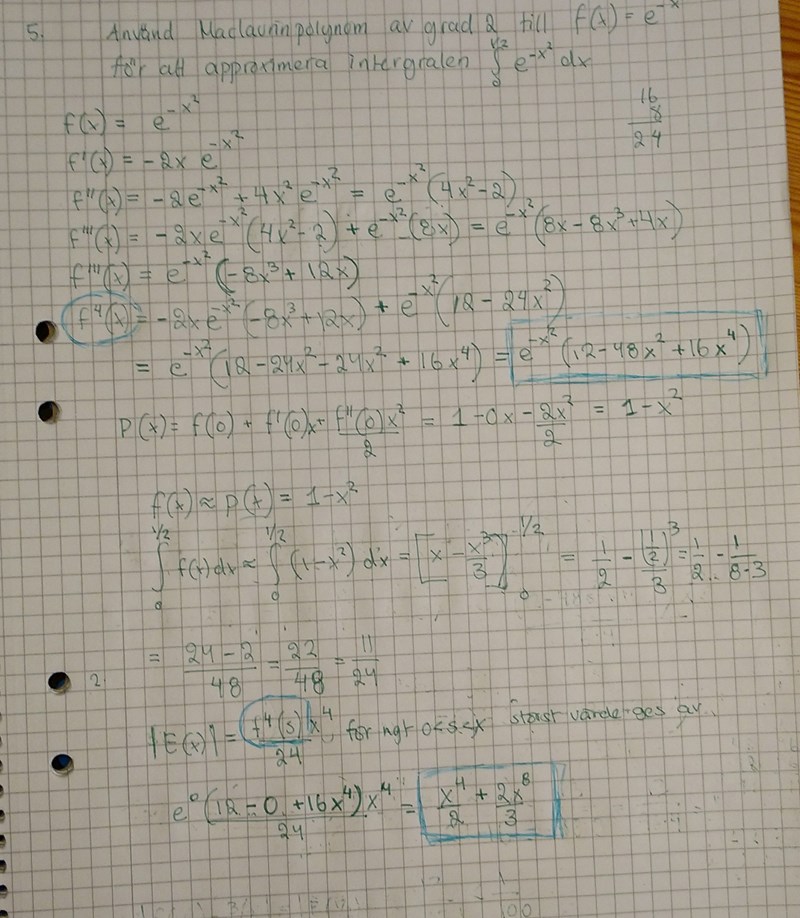 5. Använd Maclaurinpolynom av grad 2 till f(x) = e^-x
för att approximera intergralen ∫₀^1/2 e^-x² dx
16
8
24
f(x) = e^-x²
f'(x) = -2x e^-x²
f''(x) = -2e^-x² + 4x² e^-x² = e^-x² (4x²-2)
f'''(x) = -2xe^-x² (4x²-2) + e^-x² (8x) = e^-x² (8x - 8x³ + 4x)
f'''(x) = e^-x² (-8x³ + 12x)
f⁴(x) = -2xe^-x² (-8x³ + 12x) + e^-x² (12 - 24x²)
= e^-x² (12 - 24x² - 24x² + 16x⁴) = e^-x² (12 - 48x² + 16x⁴)
P(x) = f(0) + f'(0)x + f''(0)x²/2 = 1 - 0x - 2x²/2 = 1 - x²
f(x) ≈ p(x) = 1 - x²
∫₀^1/2 f(x) dx ≈ ∫₀^1/2 (1 - x²) dx = [x - x³/3]₀^1/2 = 1/2 - (1/2)³/3 = 1/2 - 1/8·3
2 = 24-2/48 = 22/48 = 11/24
|E(x)| = f⁴(s) x⁴/24 för ngt 0<s<x störst värde ges av
e⁰ (12 - 0 + 16x⁴) x⁴/24 = x⁴/2 + 2x⁸/3